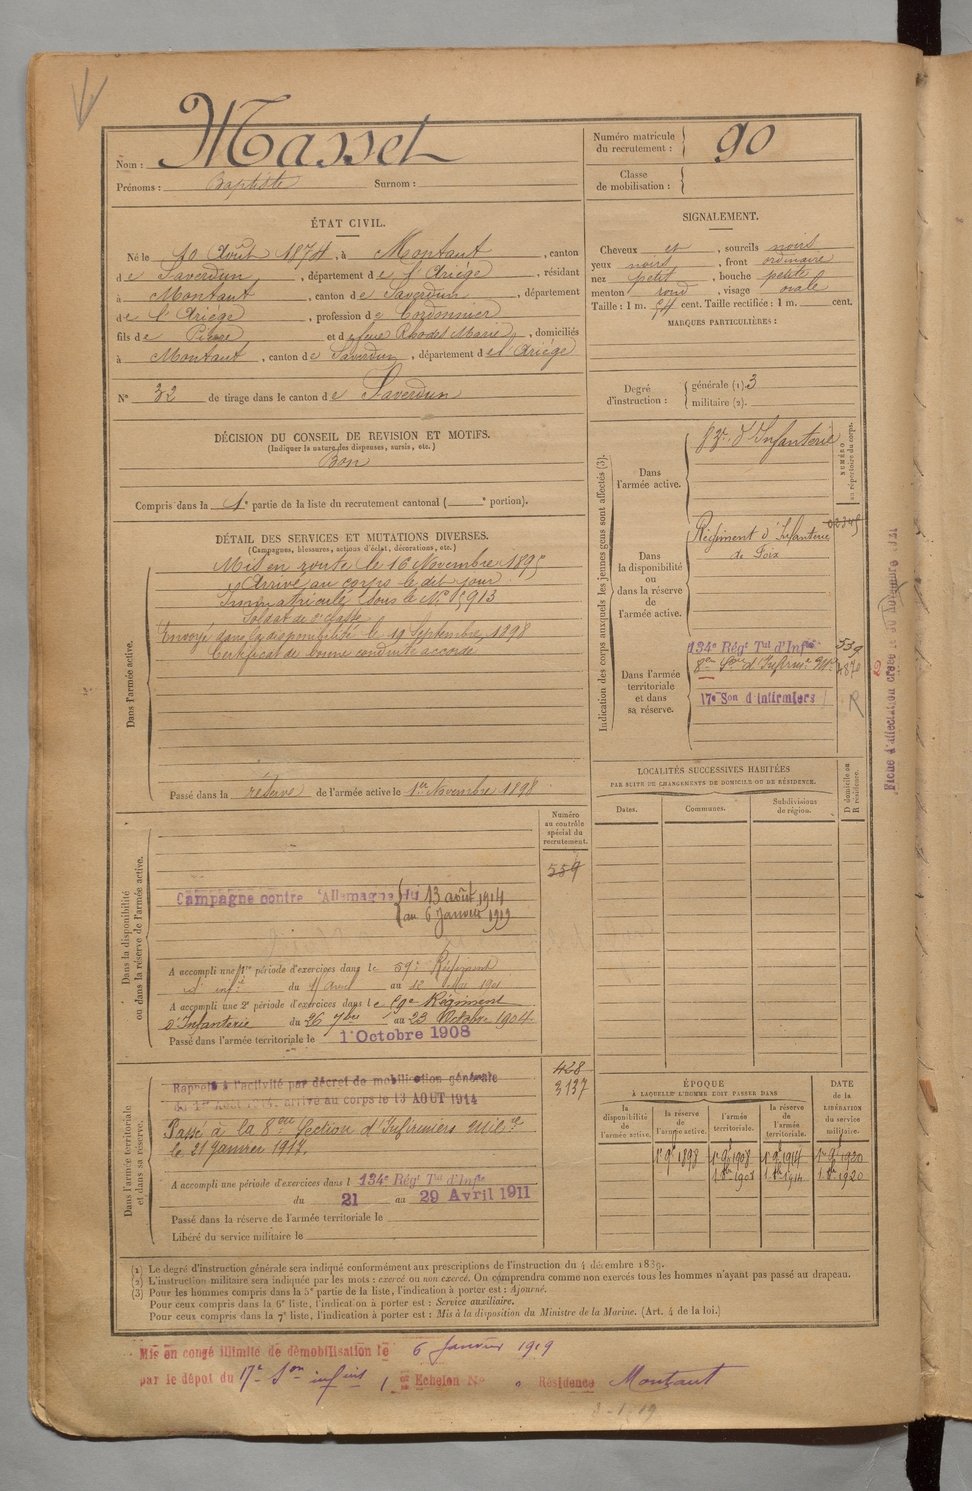 Nom : Masset
Prénoms : Baptiste Surnom :
Numéro matricule du recrutement : 90
Classe de mobilisation :
ÉTAT CIVIL.
Né le 10 Août 1874, à Montaut, canton
de Saverdun, département de l'Ariége, résidant
à Montaut, canton de Saverdun, département
de l'Ariége, profession de Cordonnier
fils de Pierre et de feue Rhodes Marie, domiciliés
à Montaut, canton de Saverdun, département de l'Ariége
N° 32 de tirage dans le canton de Saverdun
SIGNALEMENT.
Cheveux et, sourcils noirs
yeux noirs, front ordinaire
nez petit, bouche petite
menton rond, visage ovale
Taille : 1 m. cent. Taille rectifiée : 1 m. cent.
MARQUES PARTICULIÈRES :
Degré d'instruction : générale (1) 3
militaire (2).
DÉCISION DU CONSEIL DE REVISION ET MOTIFS.
(Indiquer la nature des dispenses, sursis, etc.)
Bon
Compris dans la 1e partie de la liste du recrutement cantonal ( e portion).
DÉTAIL DES SERVICES ET MUTATIONS DIVERSES.
(Campagnes, blessures, actions d'éclat, décorations, etc.)
Dans l'armée active.
Mis en route le 16 Novembre 1895
Arrivé au corps le dit jour
Immatriculé sous le N° 5913
Soldat de 2e classe
Envoyé dans la disponibilité le 19 Septembre 1898
Certificat de bonne conduite accordé
Passé dans la réserve de l'armée active le 1er Novembre 1898
Indication des corps auxquels les jeunes gens sont affectés (3).
NUMÉRO au répertoire du corps.
Dans l'armée active.
d'Infanterie
Dans la disponibilité ou dans la réserve de l'armée active.
Régiment d'Infanterie
de Foix
Dans l'armée territoriale et dans sa réserve.
134e Régt Tal d'Infie 539
8e Son d'Infirmrs Mres 4870
17e Son d'Infirmiers R
LOCALITÉS SUCCESSIVES HABITÉES
PAR SUITE DE CHANGEMENTS DE DOMICILE OU DE RÉSIDENCE.
Dates. Communes. Subdivisions de région.
D domicile ou R résidence.
Dans la disponibilité ou dans la réserve de l'armée active.
Numéro au contrôle spécial du recrutement.
559
Campagne contre l'Allemagne du 13 août 1914
au 6 Janvier 1919
A accompli une 1re période d'exercices dans le 59e Régiment
d'infie du au
A accompli une 2e période d'exercices dans le Régiment
d'Infanterie du 26 7bre au 23 Octobre 1904
Passé dans l'armée territoriale le 1er Octobre 1908
Dans l'armée territoriale et dans sa réserve.
428
3137
Rappelé à l'activité par décret de mobilisation générale
du 1er Août 1914, arrivé au corps le 13 AOUT 1914
Passé à la 8ème Section d'Infirmiers Milres
le 21 Janvier 1917.
A accompli une période d'exercices dans l 134e Régt Tal d'Infie
du 21 au 29 Avril 1911
Passé dans la réserve de l'armée territoriale le
Libéré du service militaire le
ÉPOQUE
À LAQUELLE L'HOMME DOIT PASSER DANS
la disponibilité de l'armée active.
la réserve de l'armée active.
l'armée territoriale.
la réserve de l'armée territoriale.
DATE de la LIBÉRATION du service militaire.
1er 9bre 1898 1er 9bre 1908 1er 9bre 1914 1er 9bre 1920
1. 8bre 1908 1. 8bre 1914 1. 8bre 1920
(1) Le degré d'instruction générale sera indiqué conformément aux prescriptions de l'instruction du 4 décembre 1889.
(2) L'instruction militaire sera indiquée par les mots : exercé ou non exercé. On comprendra comme non exercés tous les hommes n'ayant pas passé au drapeau.
(3) Pour les hommes compris dans la 5e partie de la liste, l'indication à porter est : Ajourné.
Pour ceux compris dans la 6e liste, l'indication à porter est : Service auxiliaire.
Pour ceux compris dans la 7e liste, l'indication à porter est : Mis à la disposition du Ministre de la Marine. (Art. 4 de la loi.)
Mis en congé illimité de démobilisation le 6 Janvier 1919
par le dépôt du 17e Son infirs Echelon No " Résidence Montaut